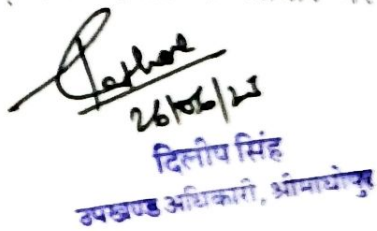 26/06/25
दिलीप सिंह
उपखण्ड अधिकारी, श्रीमाधोपुर